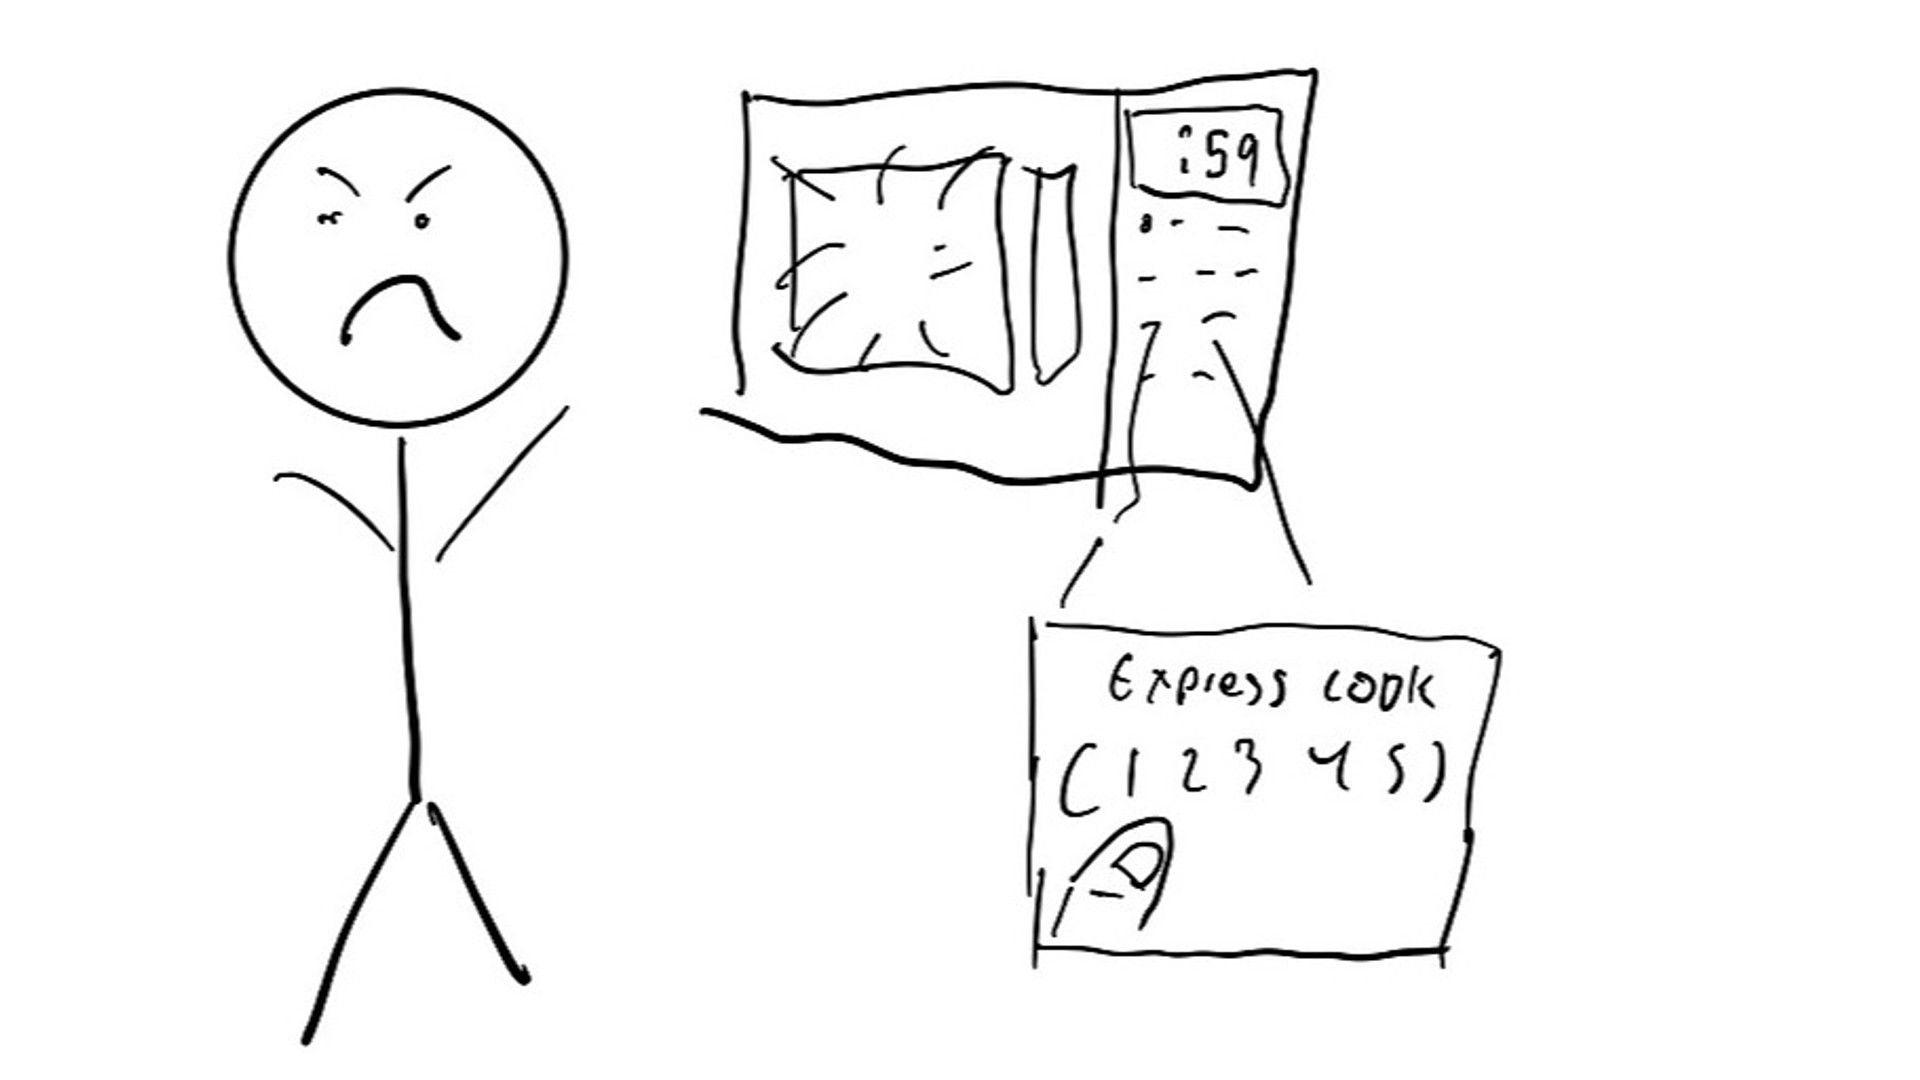 :59
Express cook
(1 2 3 4 5)